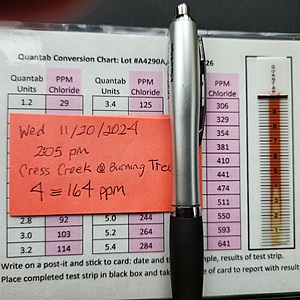 Quantab Conversion Chart: Lot #A4290A, 26
Quantab Units PPM Chloride Quantab Units PPM Chloride Chloride
1.2 29 3.4 125 306
329
354
381
410
441
474
511
2.8 92 5.0 244 550
3.0 103 5.2 264 593
3.2 114 5.4 284 641
Wed 11/20/2024
2:05 pm
Cress Creek @ Burning Tree
4 = 164 ppm
QUANTAB
Write on a post-it and stick to card: date and time, results of test strip.
Place completed test strip in black box and take of card to report with results